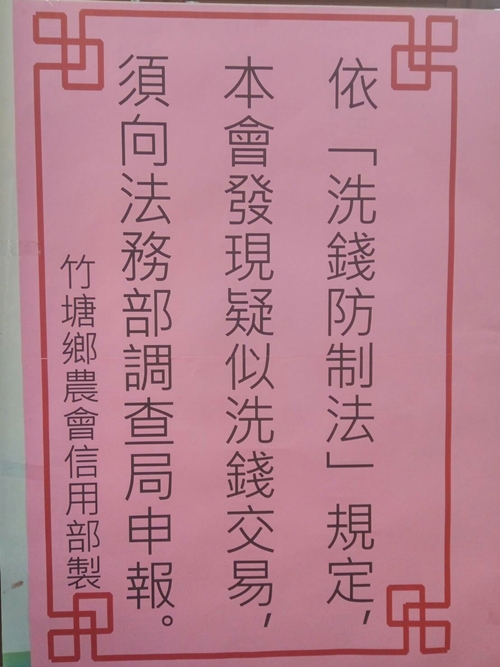 依「洗錢防制法」規定，
本會發現疑似洗錢交易，
須向法務部調查局申報。
竹塘鄉農會信用部製